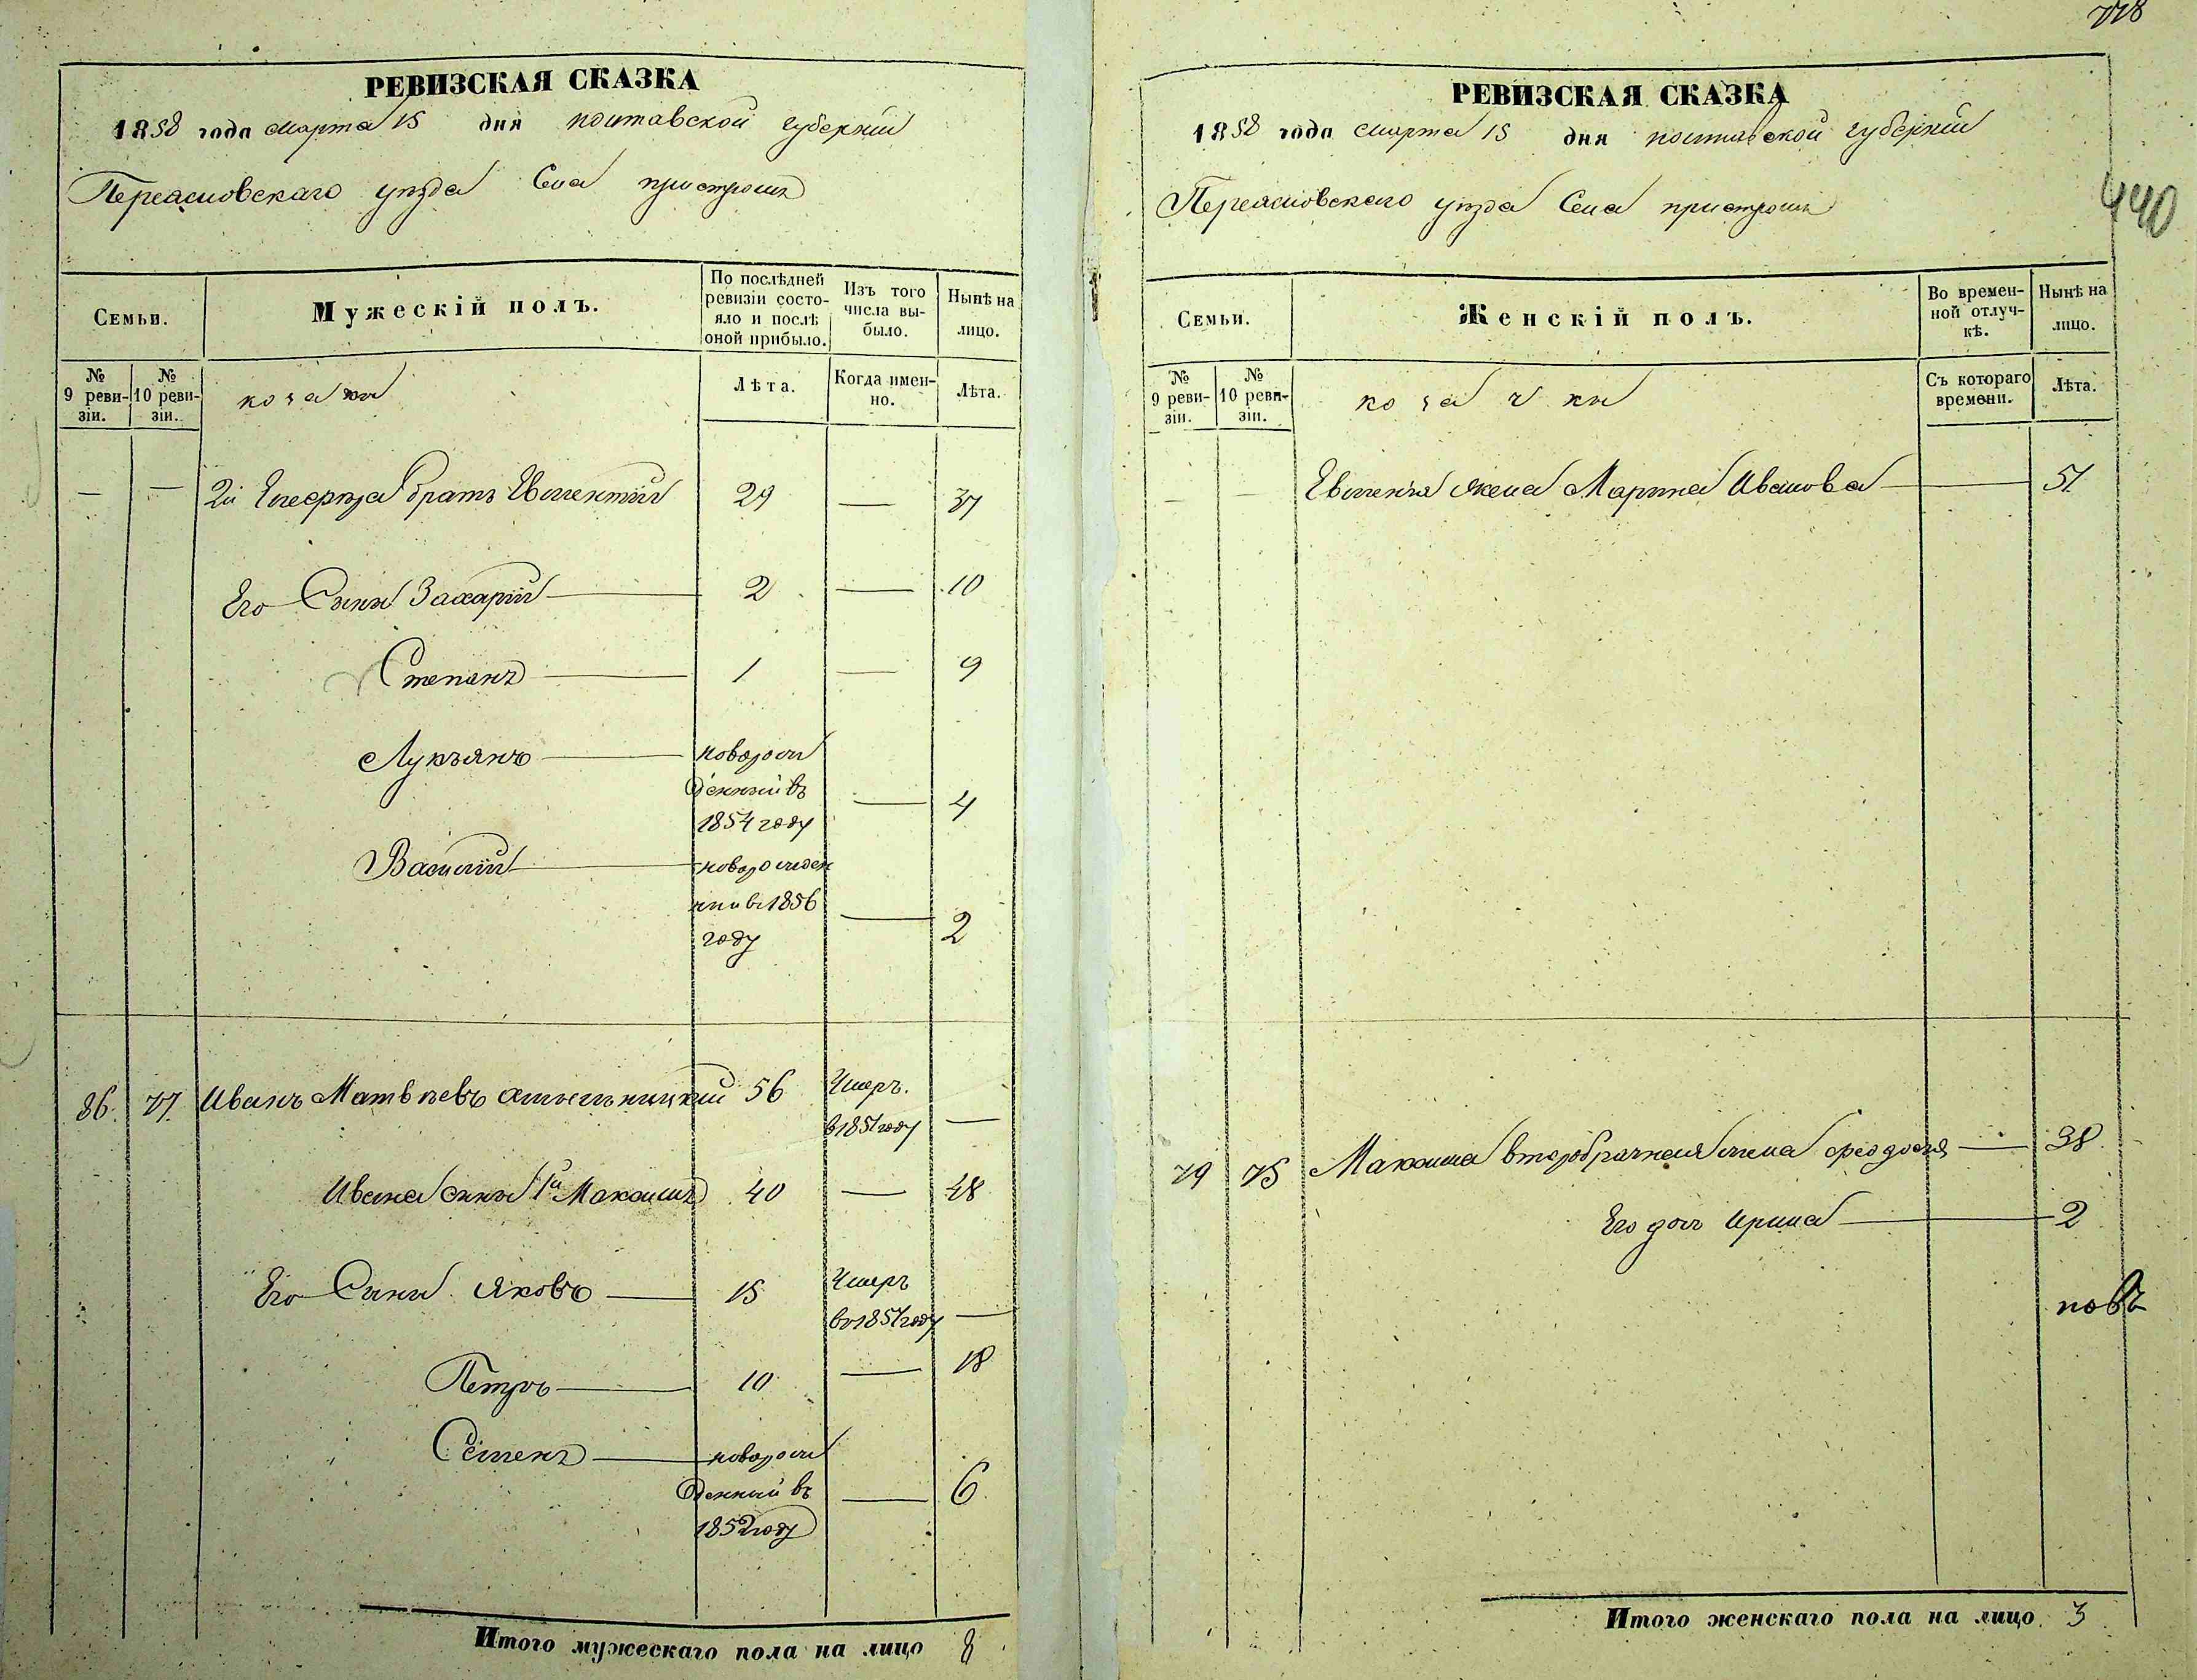 РЕВИЗСКАЯ СКАЗКА
1858 года марта 15 дня полтавской губернии
Переясловскаго уезда Села пристромъ
Семьи.
Мужескій полъ.
По послѣдней ревизіи состо-
яло и послѣ
оной прибыло.
Изъ того
числа вы-
было.
Нынѣ на
лицо.
№
9 реви-
зіи.
№
10 реви-
зіи.
козаки
Лѣта.
Когда имен-
но.
Лѣта.
— — 2й братъ Евгентий 29 — 37
Его Сыны Захарий 2 — 10
Степанъ 1 — 9
Лукъянъ — новорож
денный въ
1854 году — 4
Василий — новорожден
ный въ 1856
году — 2
86. 77. Иванъ Матвѣевъ 56 Умеръ.
в 1851 году —
Ивана сынъ 1й Максимъ 40 — 48
Его Сыны Яковъ — 15 Умеръ
въ 1851 году —
Петръ — 10 — 18
Семенъ — новорож
денный въ
1852 году — 6
Итого мужескаго пола на лицо 8
778
РЕВИЗСКАЯ СКАЗКА
1858 года марта 15 дня полтавской губернии
Переясловскаго уезда Села пристромъ
440
Семьи.
Женскій полъ.
Во времен-
ной отлуч-
кѣ.
Нынѣ на
лицо.
№
9 реви-
зіи.
№
10 реви-
зіи.
козачки
Съ котораго
времени.
Лѣта.
— — жена Марина Иванова — 51
79 75 Максима второбрачная жена феодосия — 38
Его дочь Ирина — 2
Итого женскаго пола на лицо. 3